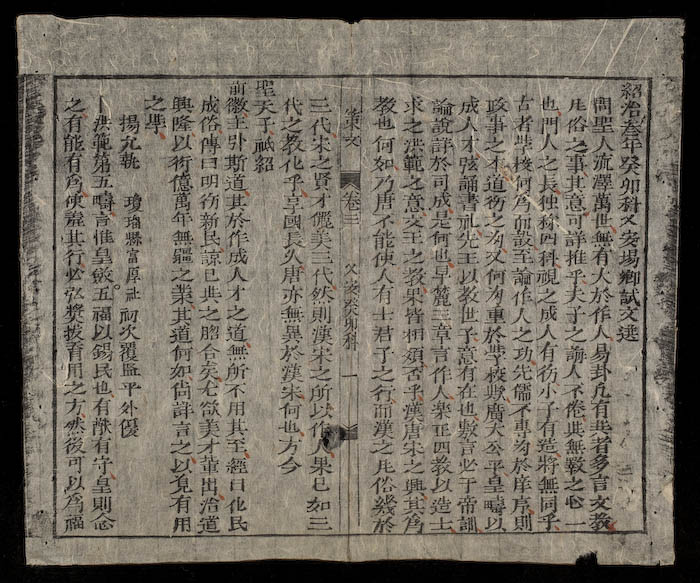 紹治叁年癸卯科乂安場鄉試文選
問聖人流澤萬世無有大於作人易卦凡有此者多言文教
庀俗之事其意可詳推乎夫子之誨人不倦與無斁之心一
也門人之長独称四科視之成人有徳小子有造將無同乎
古者学校何為而設至論作人之功先儒不專於庠序則
政事之才道徳之又何重於学校歟廣大公平皇疇以
成人才弦誦書礼先王以教世子意有在也敷言必于帝訓
論說詳於可成是何也旱麓三章言作人楽正四教以造士
求之洪範之意文王之教果皆相須否乎漢唐宋之興其為
教也何如乃唐不能使人有士君子之行而漢之庀俗幾於
策文 卷三 乂安癸卯科 一
三代宋之賢才儷美三代然則漢宋之所以作人果已如三
代之教化乎享國長久唐亦無異於漢宋何也方今
聖天子祇紹
前徽主引斯道其於作成人才之道無所不用其至經曰化民
成俗傳曰明徳新民諒已與之脗合矣尤欲美才輩出治道
興隆以衍億萬年無疆之業其道何如尚詳言之以覓有用
之學
楊允執 瓊瑠縣富厚社 初次覆監平外優
一洪範第五疇言惟皇斂五福以錫民也有猷有守皇則念
之有能有為使羞其行必弘奨拔育用之方然後可以為福